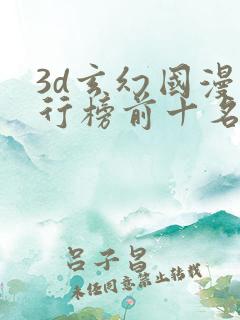 3d玄幻国漫
行榜前十名
吕子昌
未经同意禁止转载